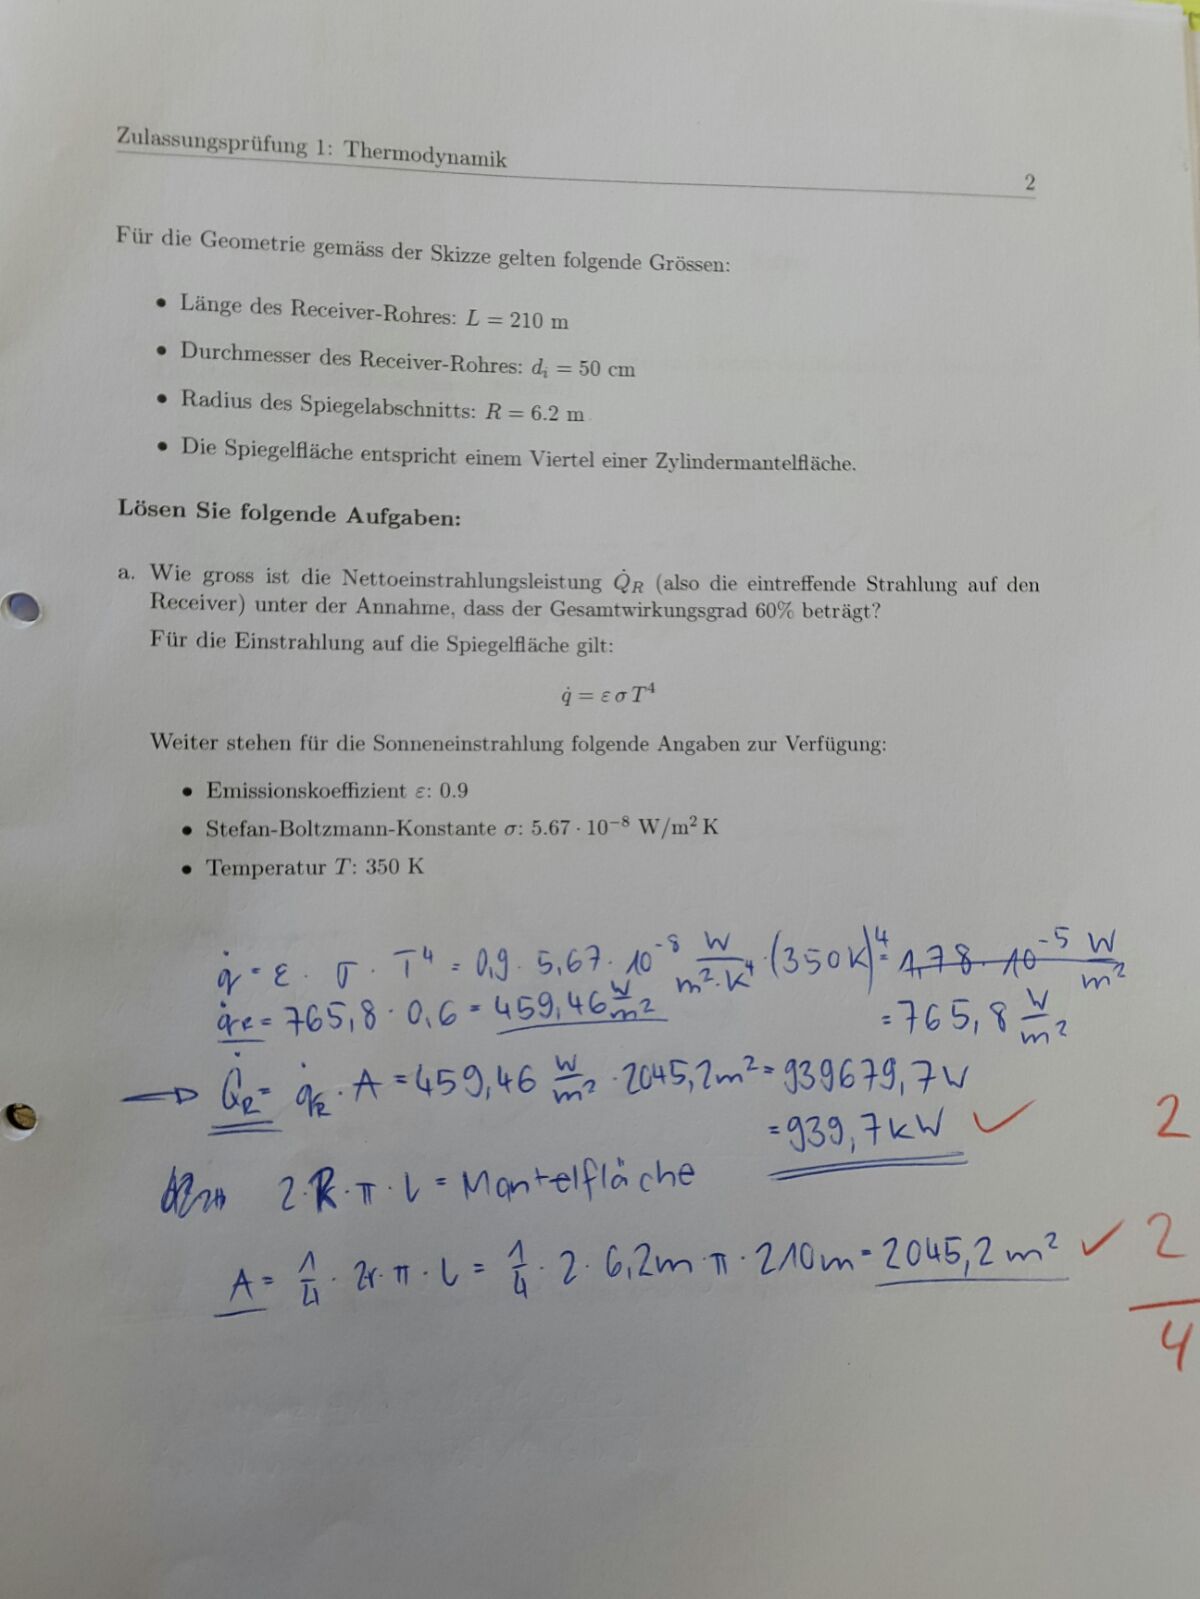 Zulassungsprüfung 1: Thermodynamik
2
Für die Geometrie gemäss der Skizze gelten folgende Grössen:
• Länge des Receiver-Rohres: L = 210 m
• Durchmesser des Receiver-Rohres: dᵢ = 50 cm
• Radius des Spiegelabschnitts: R = 6.2 m
• Die Spiegelfläche entspricht einem Viertel einer Zylindermantelfläche.
Lösen Sie folgende Aufgaben:
a. Wie gross ist die Nettoeinstrahlungsleistung Q̇_R (also die eintreffende Strahlung auf den
Receiver) unter der Annahme, dass der Gesamtwirkungsgrad 60% beträgt?
Für die Einstrahlung auf die Spiegelfläche gilt:
q̇ = ε σ T⁴
Weiter stehen für die Sonneneinstrahlung folgende Angaben zur Verfügung:
• Emissionskoeffizient ε: 0.9
• Stefan-Boltzmann-Konstante σ: 5.67 · 10⁻⁸ W/m² K
• Temperatur T: 350 K
q̇ = ε · σ · T⁴ = 0,9 · 5,67 · 10⁻⁸ W/m²·K⁴ · (350K)⁴ = 1,78 · 10⁻⁵ W/m²
q̇_R = 765,8 · 0,6 = 459,46 W/m² = 765,8 W/m²
→ Q̇_R = q̇_R · A = 459,46 W/m² · 2045,2m² = 939679,7W
= 939,7kW ✓ 2
2·R·π·L = Mantelfläche
A = 1/4 · 2r·π·L = 1/4 · 2 · 6,2m · π · 210m = 2045,2 m² ✓ 2
4